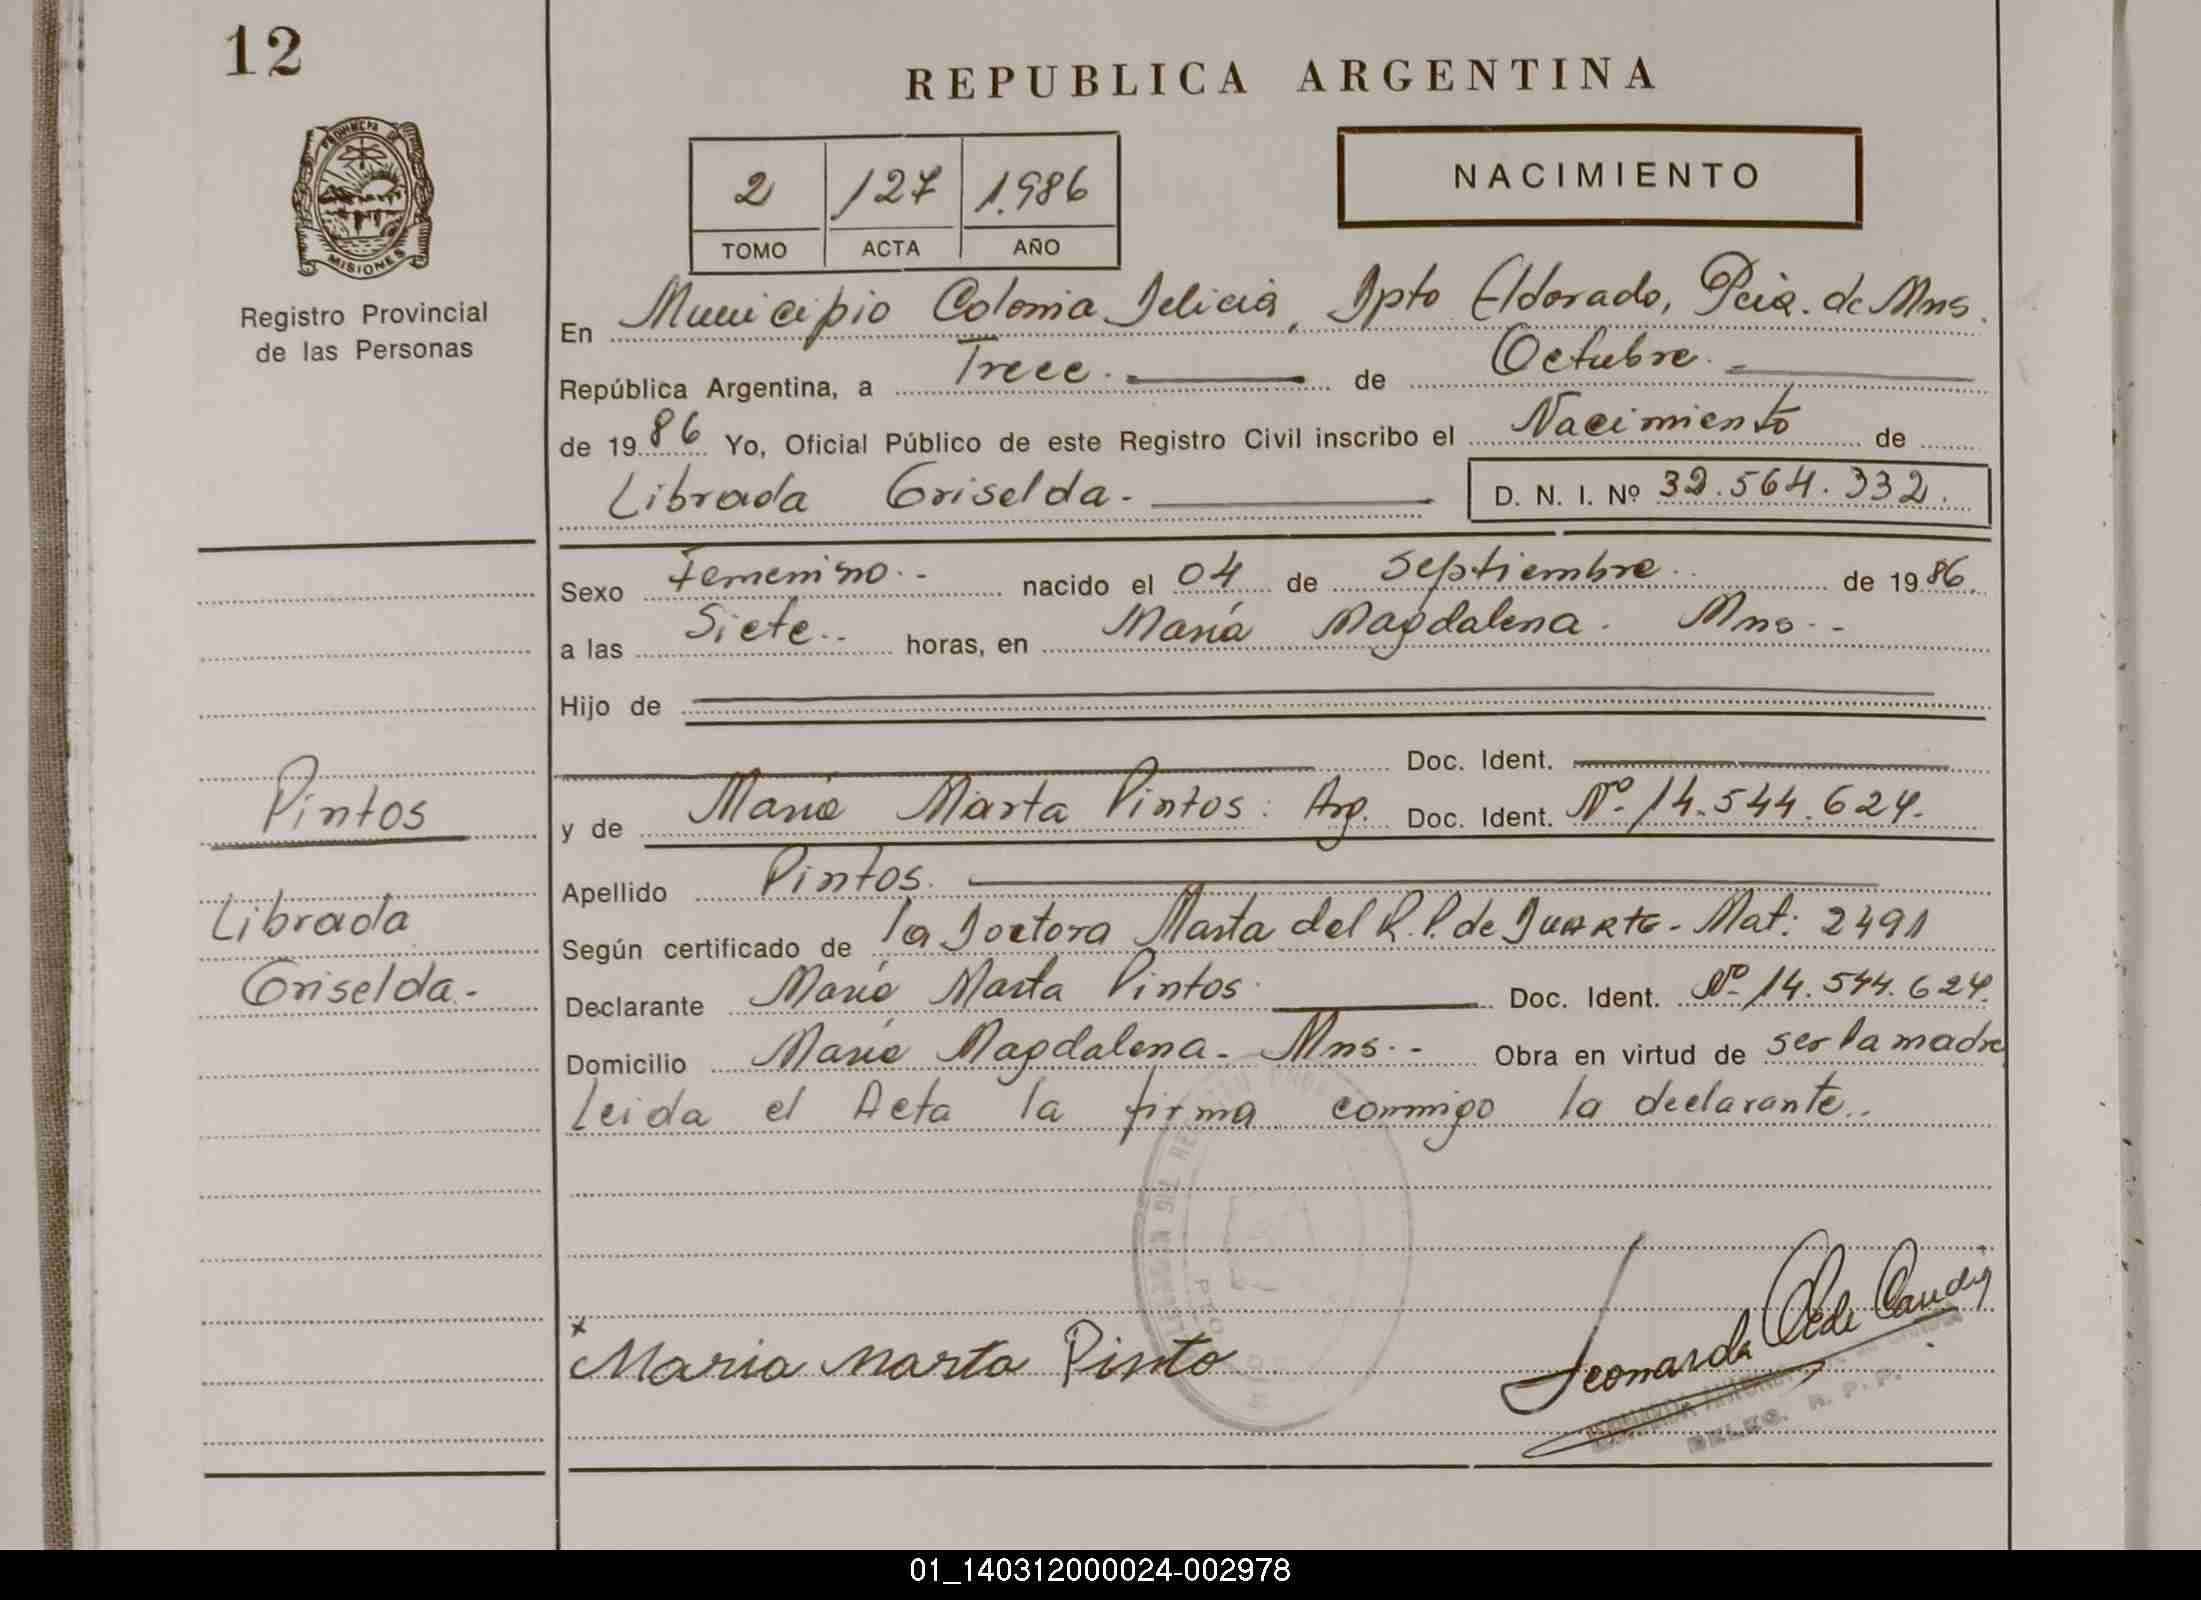 12
REPUBLICA ARGENTINA
PROVINCIA DE
MISIONES
Registro Provincial
de las Personas
2 127 1.986
TOMO ACTA AÑO
NACIMIENTO
En Municipio Colonia Delicia, Dpto Eldorado, Pcia. de Mns.
República Argentina, a Trece. de Octubre.
de 1986 Yo, Oficial Público de este Registro Civil inscribo el Nacimiento de
Librada Griselda.- D. N. I. Nº 32.564.332.
Sexo Femenino.- nacido el 04 de Septiembre. de 1986.
a las Siete.. horas, en María Magdalena. Mns.-
Hijo de
Doc. Ident.
y de María Marta Pintos: Arg. Doc. Ident. Nº 14.544.624.
Apellido Pintos.
Según certificado de la Doctora Marta del R. P. de Duarte- Mat: 2491
Declarante María Marta Pintos Doc. Ident. Nº 14.544.624.
Domicilio María Magdalena- Mns.- Obra en virtud de ser la madre
Leida el Acta la firma conmigo la declarante..
Pintos
Librada
Griselda.-
x
Maria Marta Pinto
Leonarda
DELEG. R. P. P.
01_140312000024-002978